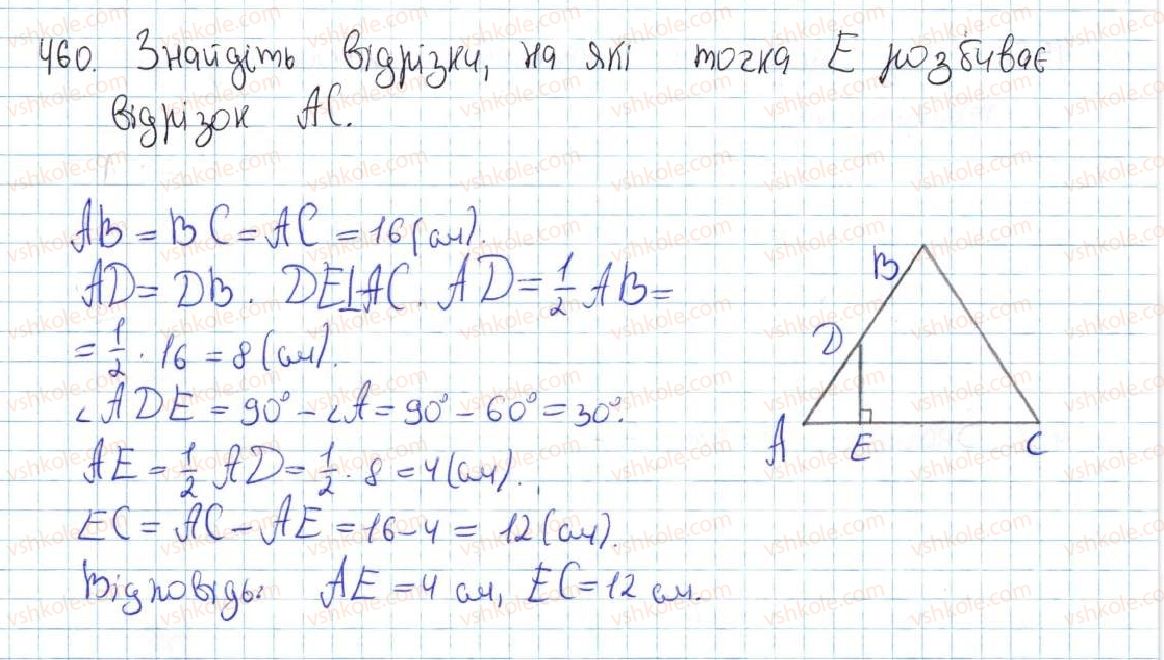 460. Знайдіть відрізки, на які точка E розбиває
відрізок AC.
AB = BC = AC = 16 (см).
AD = DB. DE⊥AC. AD = 1/2 AB =
= 1/2 · 16 = 8 (см).
∠ADE = 90° - ∠A = 90° - 60° = 30°.
AE = 1/2 AD = 1/2 · 8 = 4 (см).
EC = AC - AE = 16 - 4 = 12 (см).
Відповідь: AE = 4 см, EC = 12 см.
B
D
A E C
vshkole.com